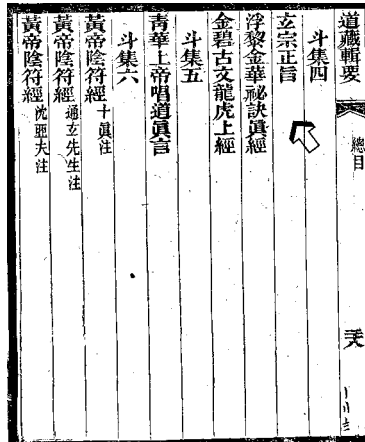 道藏輯要
總目
斗集四
玄宗正旨
浮黎金華祕訣眞經
金碧古文龍虎上經
斗集五
靑華上帝唱道眞言
斗集六
黃帝陰符經 十眞注
黃帝陰符經 通玄先生注
黃帝陰符經 沈亞夫注